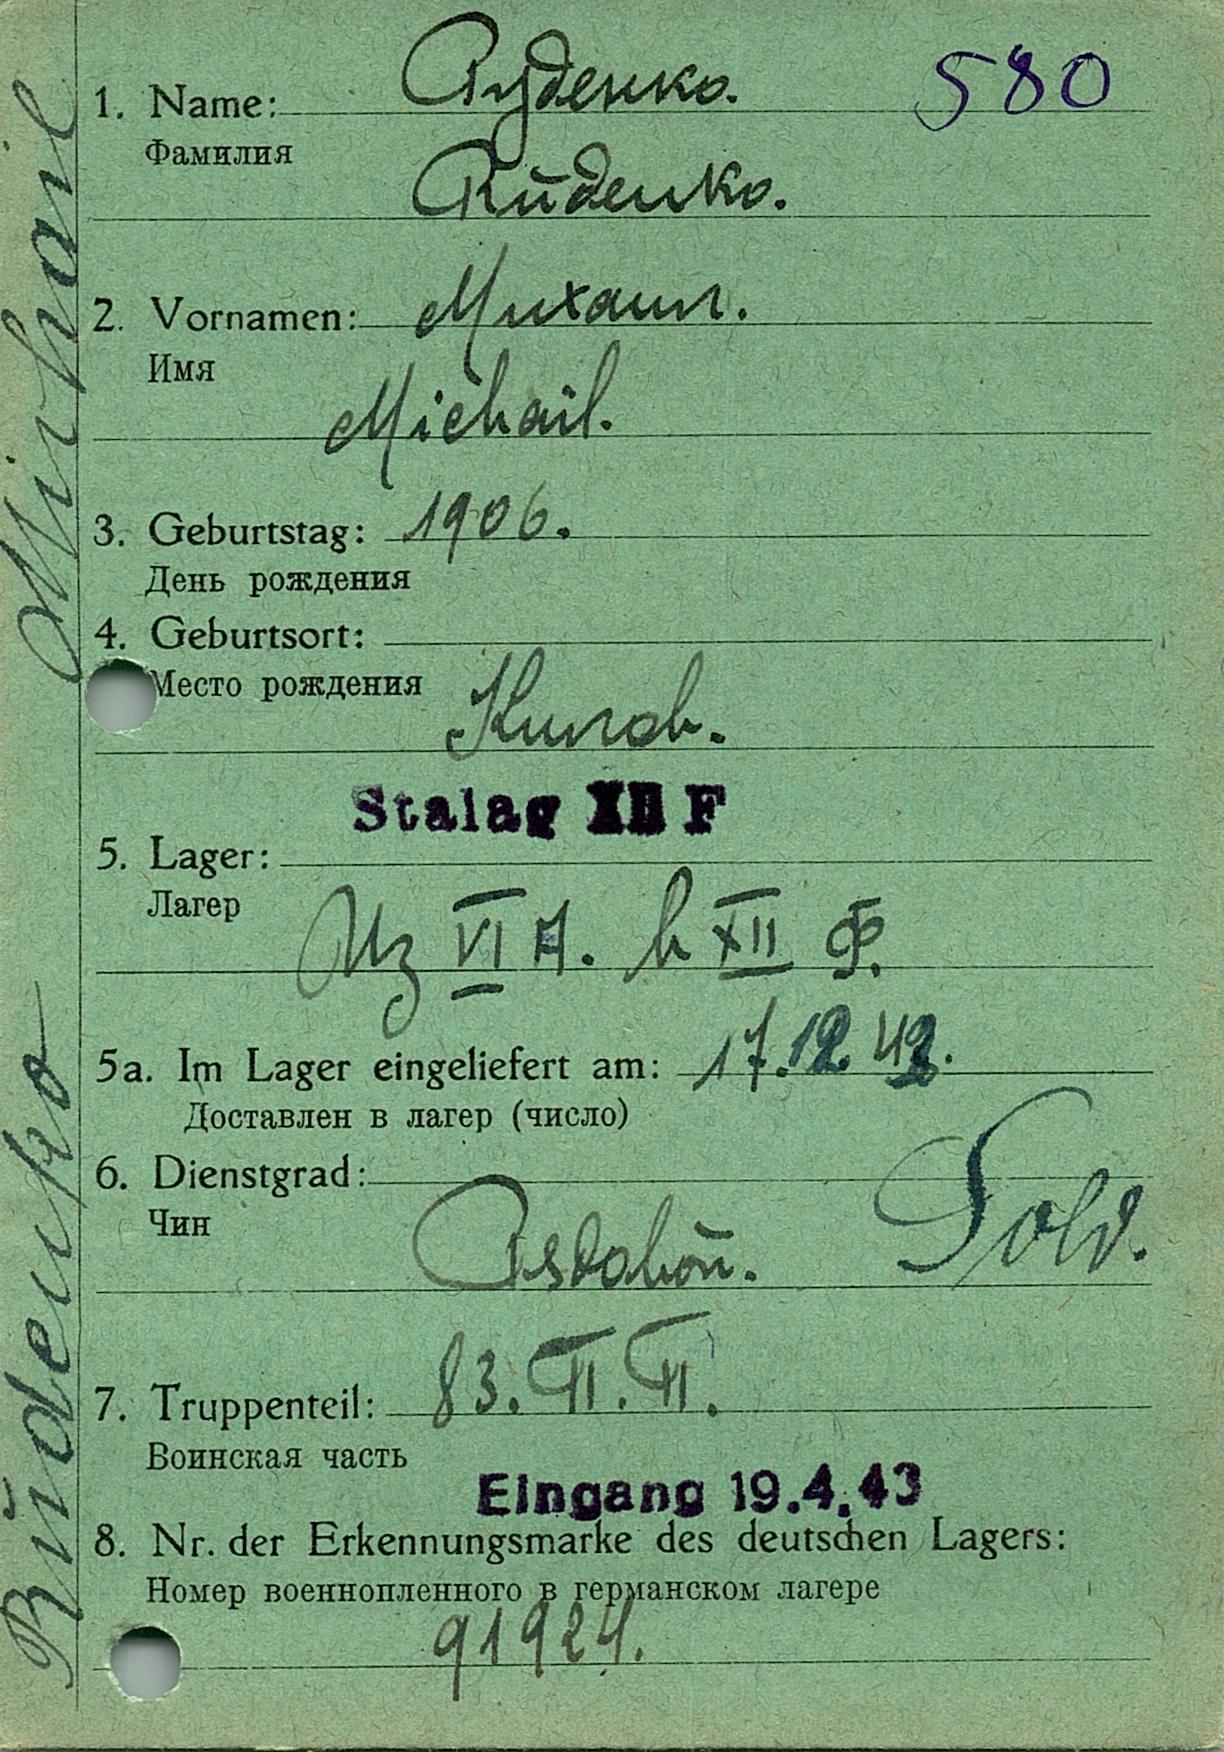 Руденко.
580
1. Name:
Фамилия
Rüdenko.
2. Vornamen: Михаил.
Имя
Michail.
3. Geburtstag: 1906.
День рождения
4. Geburtsort:
Место рождения
Stalag XII F
5. Lager:
Лагер
Из VI A. в XII Ф.
5a. Im Lager eingeliefert am: 17.12.42.
Доставлен в лагер (число)
6. Dienstgrad:
Чин
Рядовой. Sold.
7. Truppenteil: 83. П. П.
Воинская часть
Eingang 19.4.43
8. Nr. der Erkennungsmarke des deutschen Lagers:
Номер военнопленного в германском лагере
91924.
Rüdenko Michail